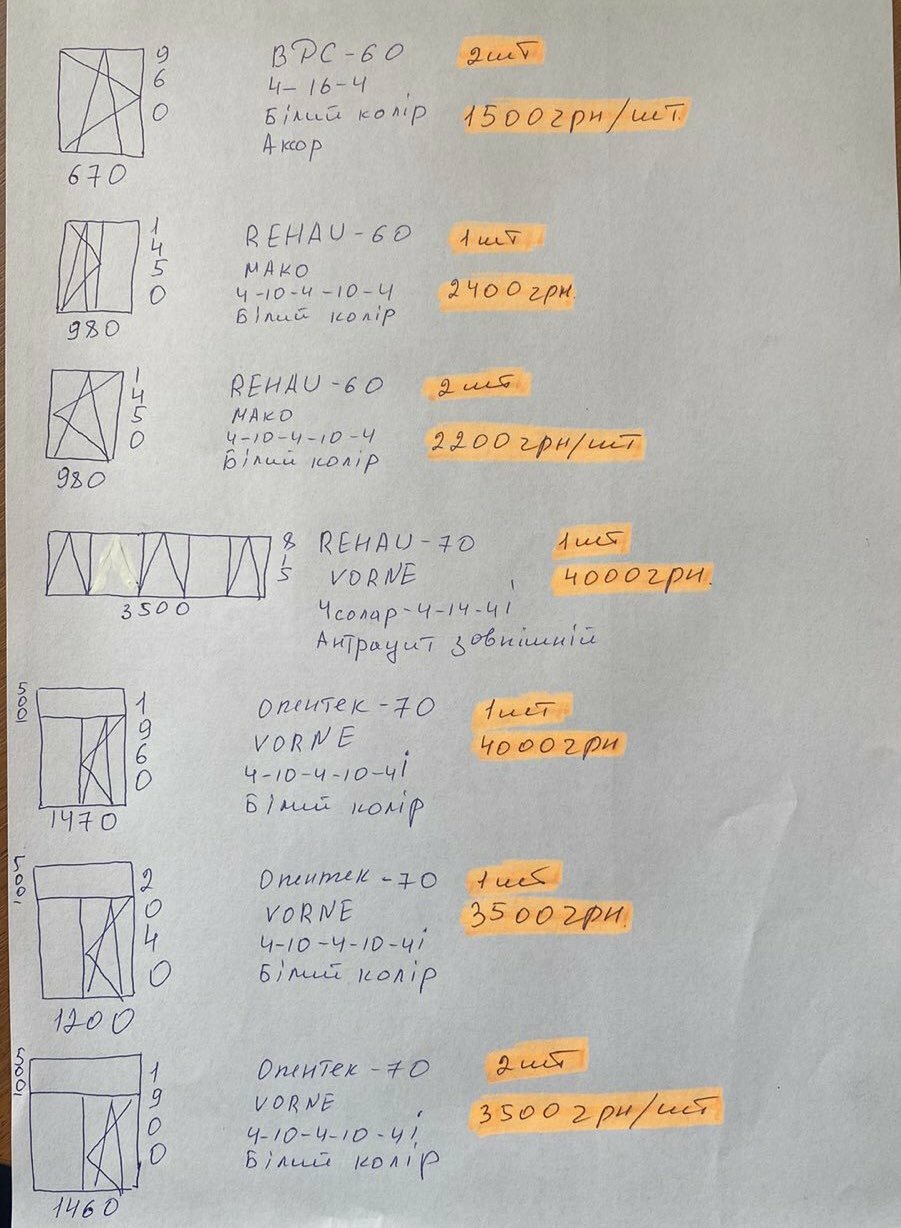 960
ВРС-60
2шт
4-16-4
Білий колір
1500грн/шт.
Аксор
670
1450
REHAU-60
1шт
МАКО
4-10-4-10-4
2400грн.
Білий колір
980
1450
REHAU-60
2шт
МАКО
4-10-4-10-4
2200грн/шт
Білий колір
980
815
REHAU-70
1шт
VORNE
4000грн.
4солар-4-14-4і
3500
Антрацит зовнішній
500
1960
Опентек-70
1шт
VORNE
4000грн
4-10-4-10-4і
Білий колір
1470
500
2040
Опентек-70
1шт
VORNE
3500грн.
4-10-4-10-4і
Білий колір
1200
500
1900
Опентек-70
2шт
VORNE
3500грн/шт
4-10-4-10-4і
Білий колір
1460